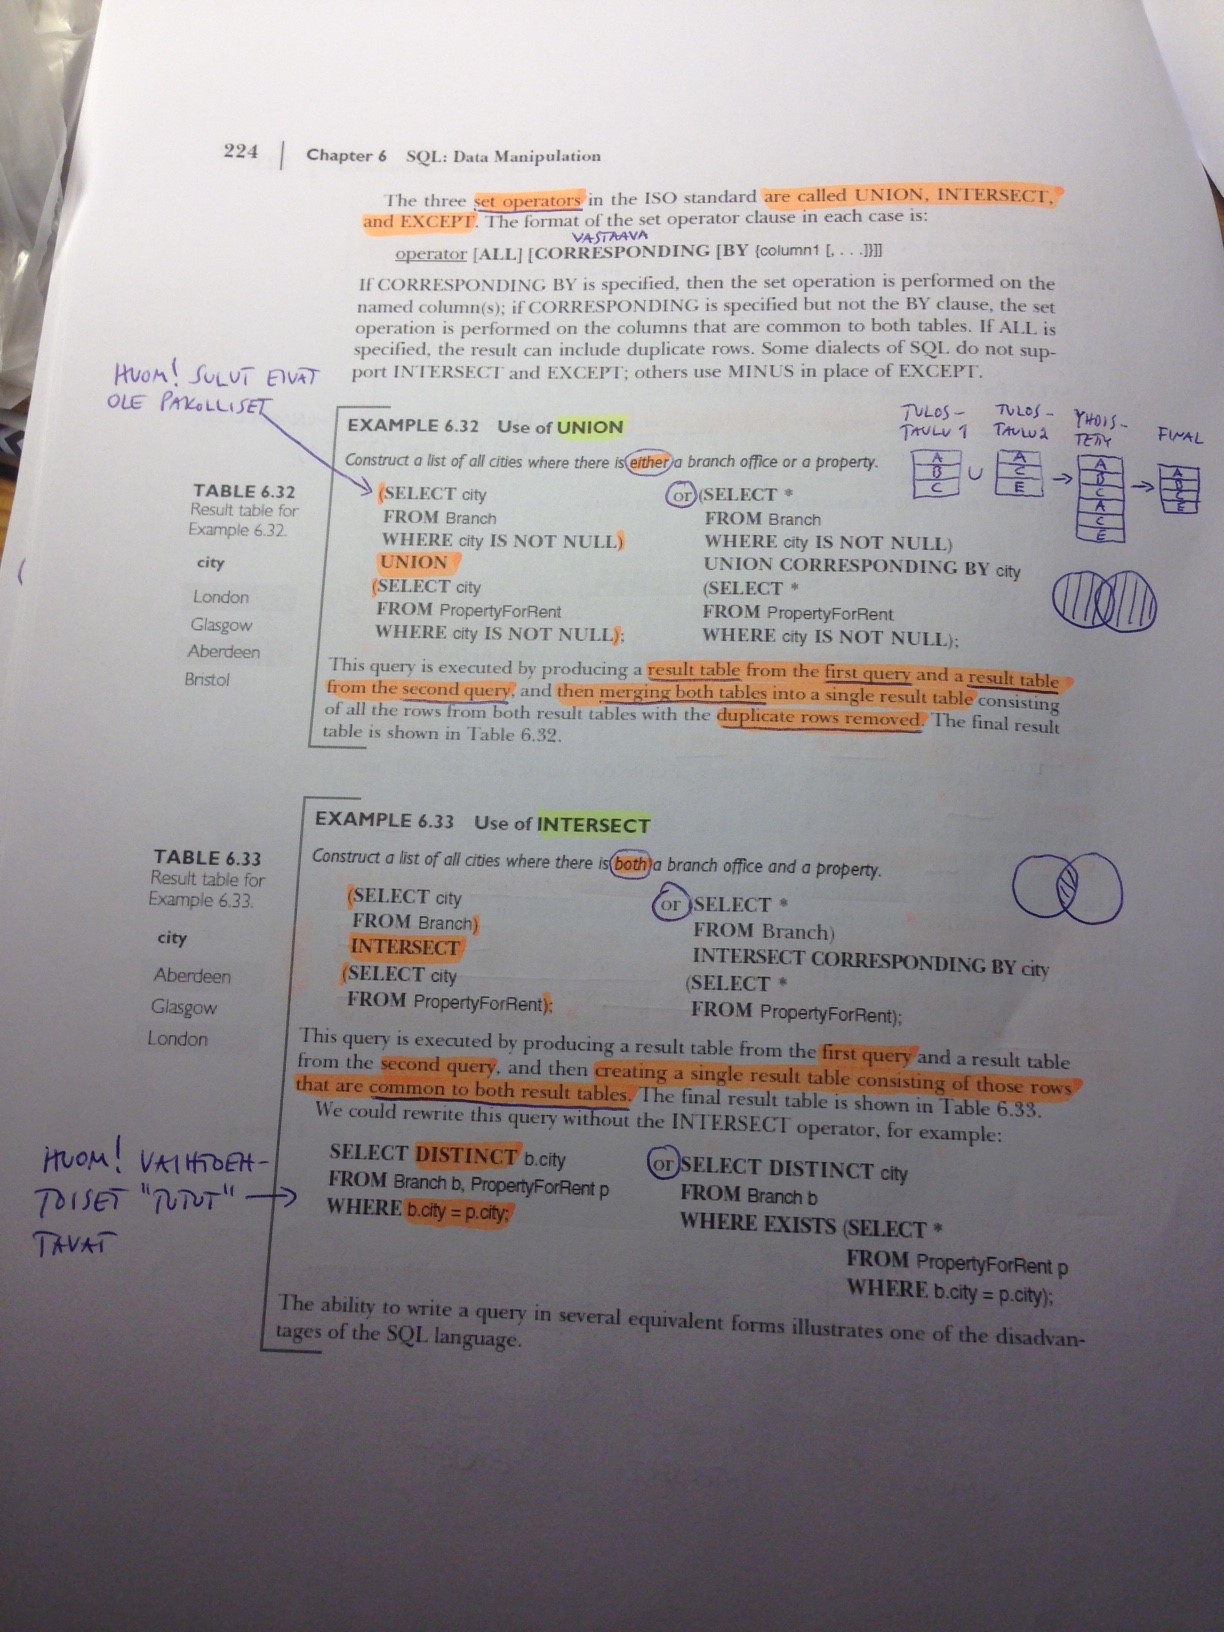 224 | Chapter 6 SQL: Data Manipulation
The three set operators in the ISO standard are called UNION, INTERSECT,
and EXCEPT. The format of the set operator clause in each case is:
VASTAAVA
operator [ALL] [CORRESPONDING [BY {column1 [, . . .]}]]
If CORRESPONDING BY is specified, then the set operation is performed on the
named column(s); if CORRESPONDING is specified but not the BY clause, the set
operation is performed on the columns that are common to both tables. If ALL is
specified, the result can include duplicate rows. Some dialects of SQL do not sup-
port INTERSECT and EXCEPT; others use MINUS in place of EXCEPT.
HUOM! SULUT EIVÄT
OLE PAKOLLISET
EXAMPLE 6.32 Use of UNION
Construct a list of all cities where there is either a branch office or a property.
(SELECT city
FROM Branch
WHERE city IS NOT NULL)
UNION
(SELECT city
FROM PropertyForRent
WHERE city IS NOT NULL);
or (SELECT *
FROM Branch
WHERE city IS NOT NULL)
UNION CORRESPONDING BY city
(SELECT *
FROM PropertyForRent
WHERE city IS NOT NULL);
TULOS-
TAULU 1
A
B
C
U
TULOS-
TAULU 2
A
C
E
YHDIS-
TETTY
A
B
C
A
C
E
FINAL
A
B
C
E
TABLE 6.32
Result table for
Example 6.32.
city
London
Glasgow
Aberdeen
Bristol
This query is executed by producing a result table from the first query and a result table
from the second query, and then merging both tables into a single result table consisting
of all the rows from both result tables with the duplicate rows removed. The final result
table is shown in Table 6.32.
EXAMPLE 6.33 Use of INTERSECT
Construct a list of all cities where there is both a branch office and a property.
(SELECT city
FROM Branch)
INTERSECT
(SELECT city
FROM PropertyForRent);
or (SELECT *
FROM Branch)
INTERSECT CORRESPONDING BY city
(SELECT *
FROM PropertyForRent);
TABLE 6.33
Result table for
Example 6.33.
city
Aberdeen
Glasgow
London
This query is executed by producing a result table from the first query and a result table
from the second query, and then creating a single result table consisting of those rows
that are common to both result tables. The final result table is shown in Table 6.33.
We could rewrite this query without the INTERSECT operator, for example:
HUOM! VAIHTOEH-
TOISET "TUTUT"
TAVAT
SELECT DISTINCT b.city
FROM Branch b, PropertyForRent p
WHERE b.city = p.city;
or SELECT DISTINCT city
FROM Branch b
WHERE EXISTS (SELECT *
FROM PropertyForRent p
WHERE b.city = p.city);
The ability to write a query in several equivalent forms illustrates one of the disadvan-
tages of the SQL language.